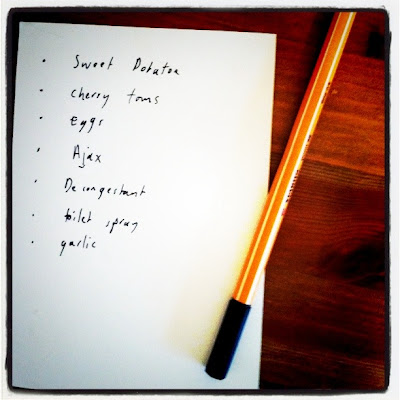 · Sweet Potatoa
· cherry toms
· Eggs
· Ajax
· Decongestant
· toilet spray
· garlic